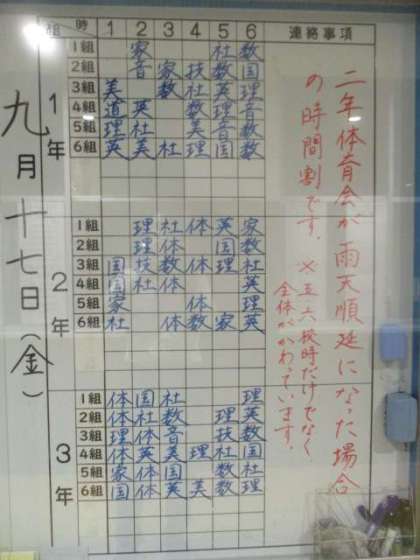 組 時 1 2 3 4 5 6 連絡事項
九月十七日(金)
1年
1組 家 社 数
2組 音 家 技 数 国
3組 美 数 社 英 理
4組 道 英 数 理 音
5組 理 社 美 音 数
6組 英 美 社 理 国 数
2年
1組 理 社 体 英 家
2組 理 体 国 数
3組 国 技 数 体 理 社
4組 国 社 体 英
5組 家 体 理
6組 社 体 数 家 英
3年
1組 体 国 社 理
2組 体 社 数 理 英
3組 理 体 音 技 数
4組 体 英 美 理 社 国
5組 家 体 国 数 社
6組 国 体 英 美 数 理
二年体育会が雨天順延になった場合
の時間割です。
×五、六校時だけでなく
全体がかわっています。